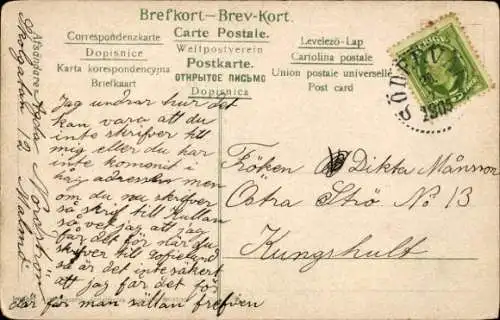 Brefkort—Brev-Kort.
Correspondenzkarte
Carte Postale.
Levelező-Lap
Dopisnice
Weltpostverein
Cartolina postale
Karta korespondencyjna
Postkarte.
Union postale universelle
Briefkaart
ОТКРЫТОЕ ПИСЬМО
Post card
Dopisnica
1905
Jag undrar hur det
kan vara att du
inte skrifver till
mig eller du har
inte kommit i
håg adressen men
om du nu skrifver
så skrif till
så vet jag att jag
får det för när du
skrifver till
så är det inte säkert
att jag får det för
där får man sällan brefven
Fröken Dikta Månsson
Östra Strö No 13
Kungshult
Afsändare
Skolgatan 12 Malmö